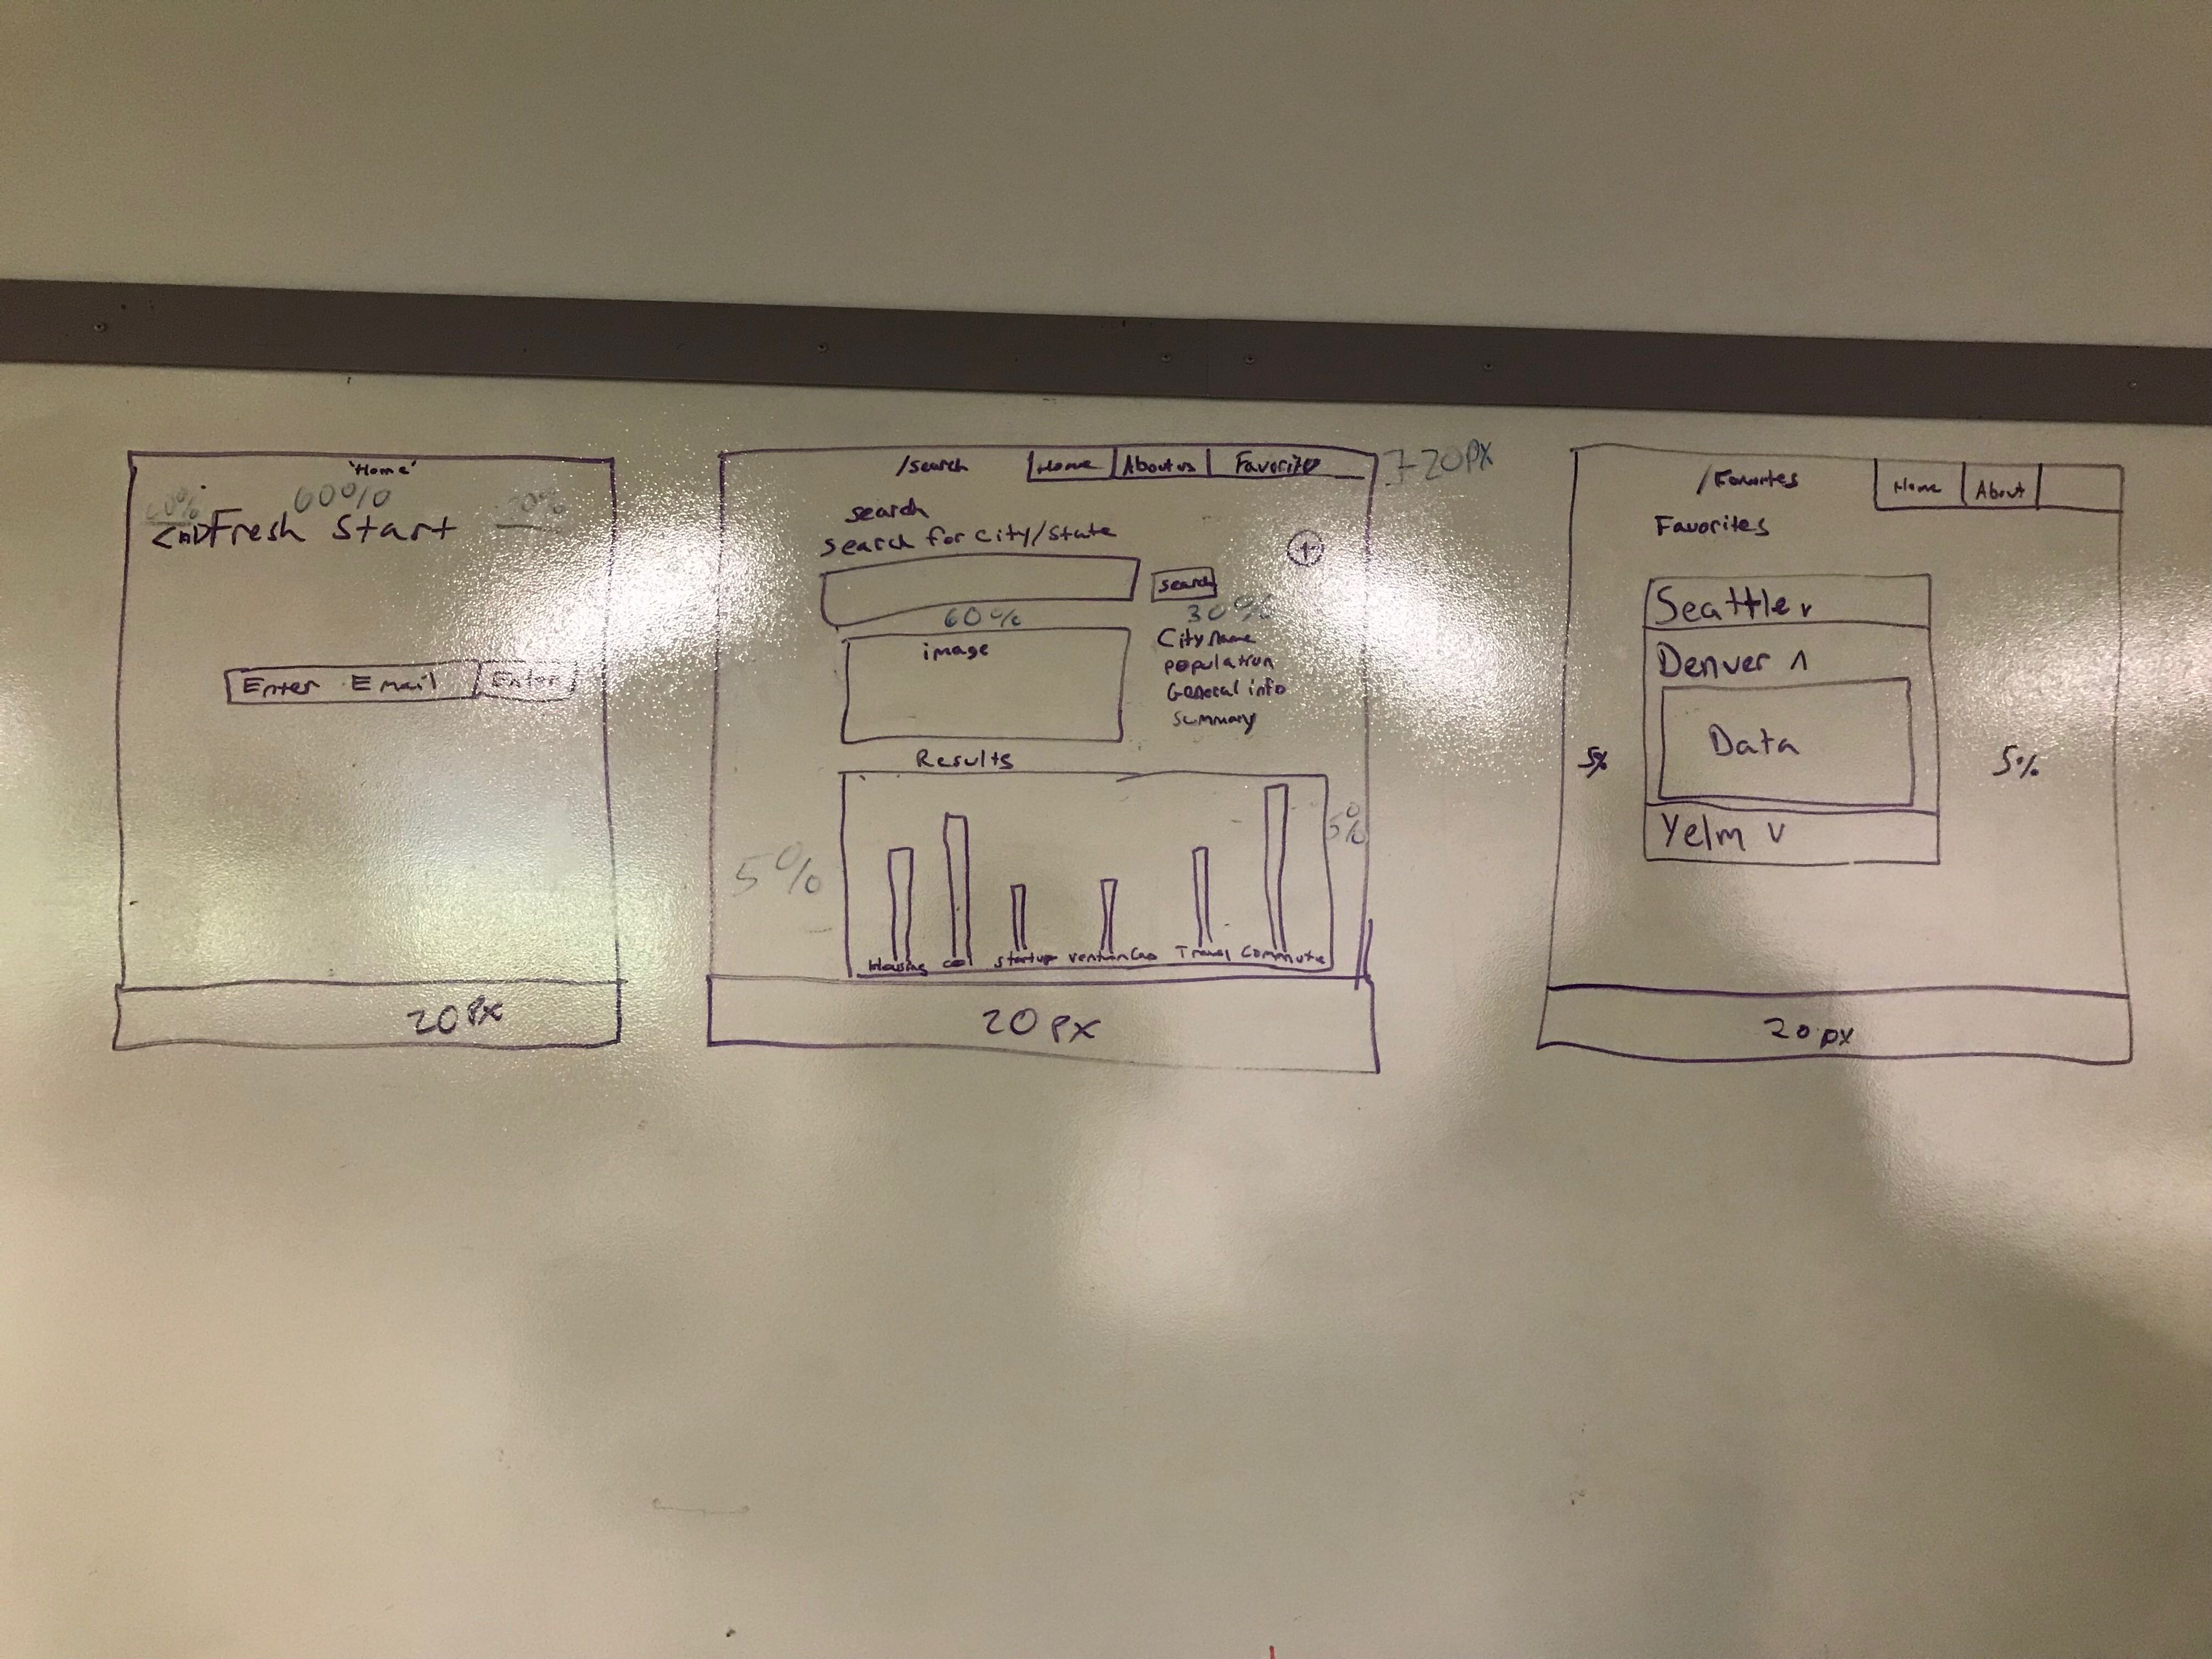 'Home'
20% 60% 20%
Fresh Start
Enter Email Enter
20px
/search Home About us Favorite
20PX
search
search for city/state
+
search
60% 30%
image
City Name
population
General info
summary
Results
5% 5%
Housing col startup venture Cap Travel Commute
20px
/Favorites Home About
Favorites
Seattle v
Denver ^
Data
5% 5%
Yelm v
20px